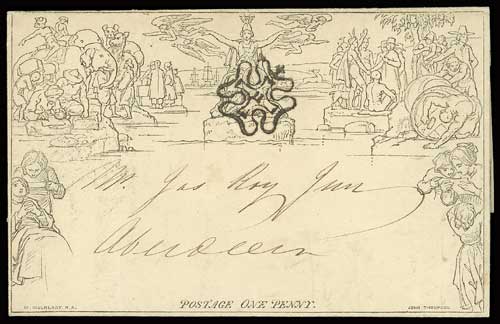 Mr. Jas Roy Junr
Aberdeen
POSTAGE ONE PENNY.
W. MULREADY. R.A.
JOHN THOMPSON